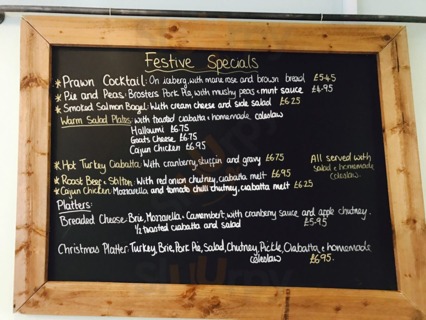 Festive Specials
* Prawn Cocktail: On iceberg, with marie rose and brown bread £5.45
* Pie and Peas: Brosters Pork Pie, with mushy peas + mint sauce £4.95
* Smoked Salmon Bagel: With cream cheese and side salad £6.25
Warm Salad Plates: with toasted ciabatta + homemade coleslaw
Halloumi £6.75
Goats Cheese £6.75
Cajun Chicken £6.95
* Hot Turkey Ciabatta: With cranberry, stuffin and gravy £6.75
All served with
salad + homemade
coleslaw.
* Roast Beef + Stilton: With red onion chutney, ciabatta melt £6.95
* Cajun Chicken: Mozzarella and tomato chilli chutney, ciabatta melt £6.25
Platters:
Breaded Cheese: Brie, Mozzarella + Camembert, with cranberry sauce and apple chutney.
1/2 toasted ciabatta and salad £5.95
Christmas Platter: Turkey, Brie, Pork Pie, Salad, Chutney, Pickle, Ciabatta + homemade
coleslaw £6.95.